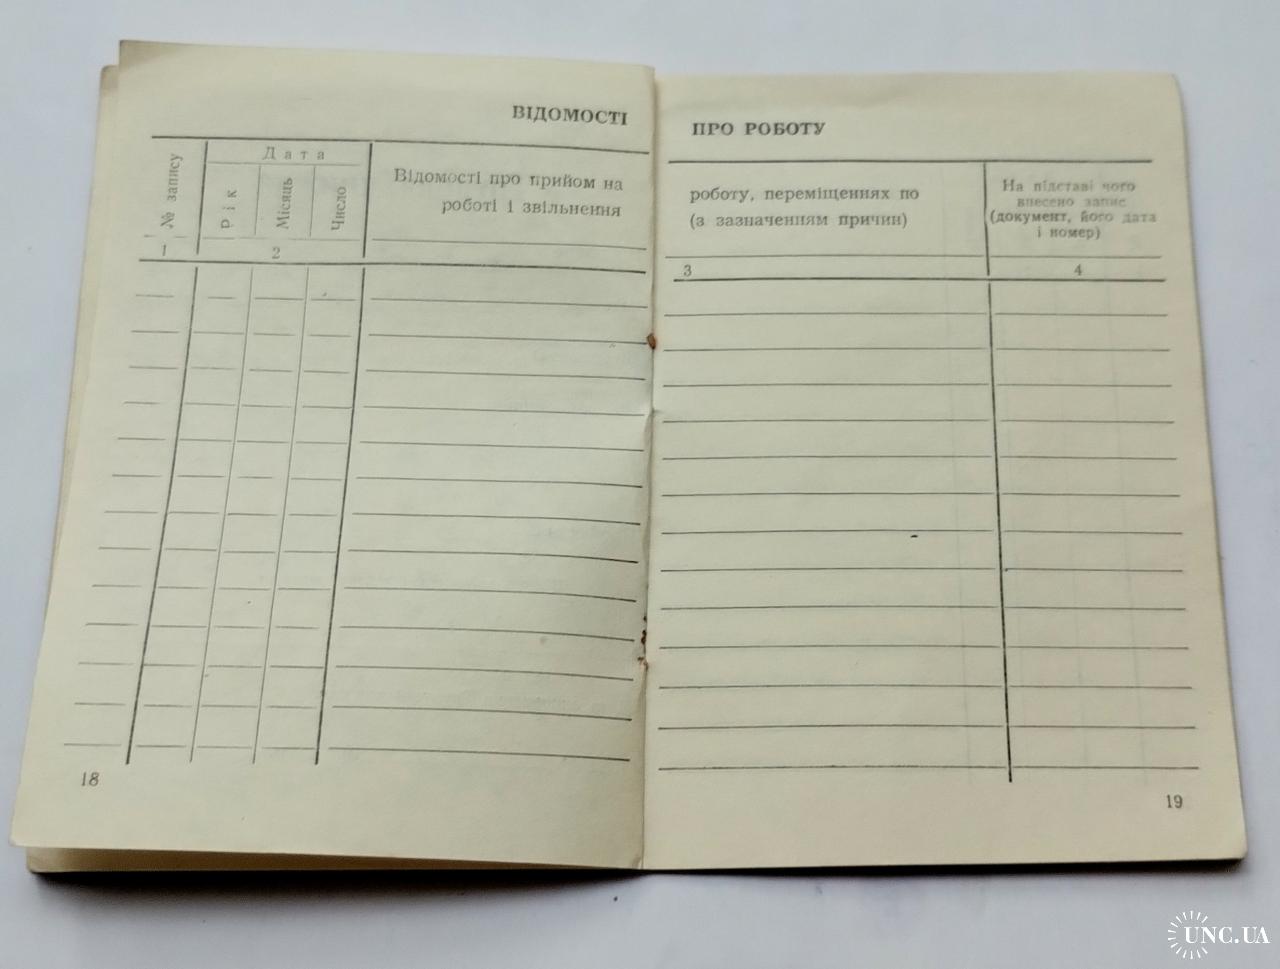 ВІДОМОСТІ
№ запису
Дата
Рік
Місяць
Число
Відомості про прийом на
роботі і звільнення
1
2
18
ПРО РОБОТУ
роботу, переміщеннях по
(з зазначенням причин)
На підставі чого
внесено запис
(документ, його дата
і номер)
3
4
19
UNC.UA